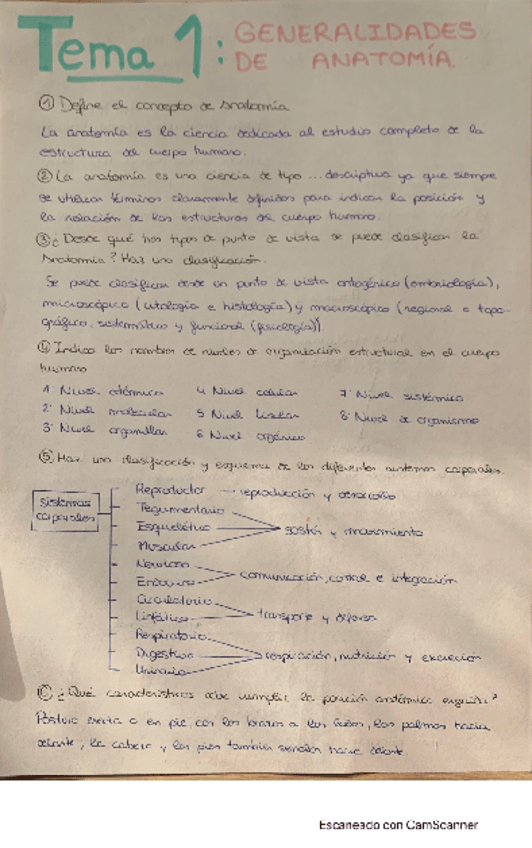 Tema 1: GENERALIDADES
DE ANATOMÍA.
① Define el concepto de anatomía
La anatomía es la ciencia dedicada al estudio completo de la
estructura del cuerpo humano.
② La anatomía es una ciencia de tipo ... descriptiva ya que siempre
se utilizan términos claramente definidos para indicar la posición y
la relación de las estructuras del cuerpo humano.
③ ¿Desde qué tipos de punto de vista se puede clasificar la
anatomía? Haz una clasificación.
Se puede clasificar desde un punto de vista ontogénico (embriología),
microscópico (citología e histología) y macroscópico (regional o topo-
gráfico, sistemático y funcional (fisiología)).
④ Indica los nombres de niveles de organización estructural en el cuerpo
humano
1 Nivel atómico
2 Nivel molecular
3 Nivel organular
4 Nivel celular
5 Nivel tisular
6 Nivel orgánico
7 Nivel sistémico
8 Nivel de organismo
⑤ Haz una clasificación y esquema de los diferentes sistemas corporales.
Sistemas
corporales
Reproductor → reproducción y desarrollo
Tegumentario
Esquelético
Muscular
sostén y movimiento
Nervioso
Endocrino
comunicación, control e integración
Circulatorio
Linfático
transporte y defensa
Respiratorio
Digestivo
Urinario
respiración, nutrición y excreción
⑥ ¿Qué características debe cumplir la posición anatómica erguida?
Postura erecta o en pie, con los brazos a los lados, las palmas hacia
delante, la cabeza y los pies también hacia delante.
Escaneado con CamScanner